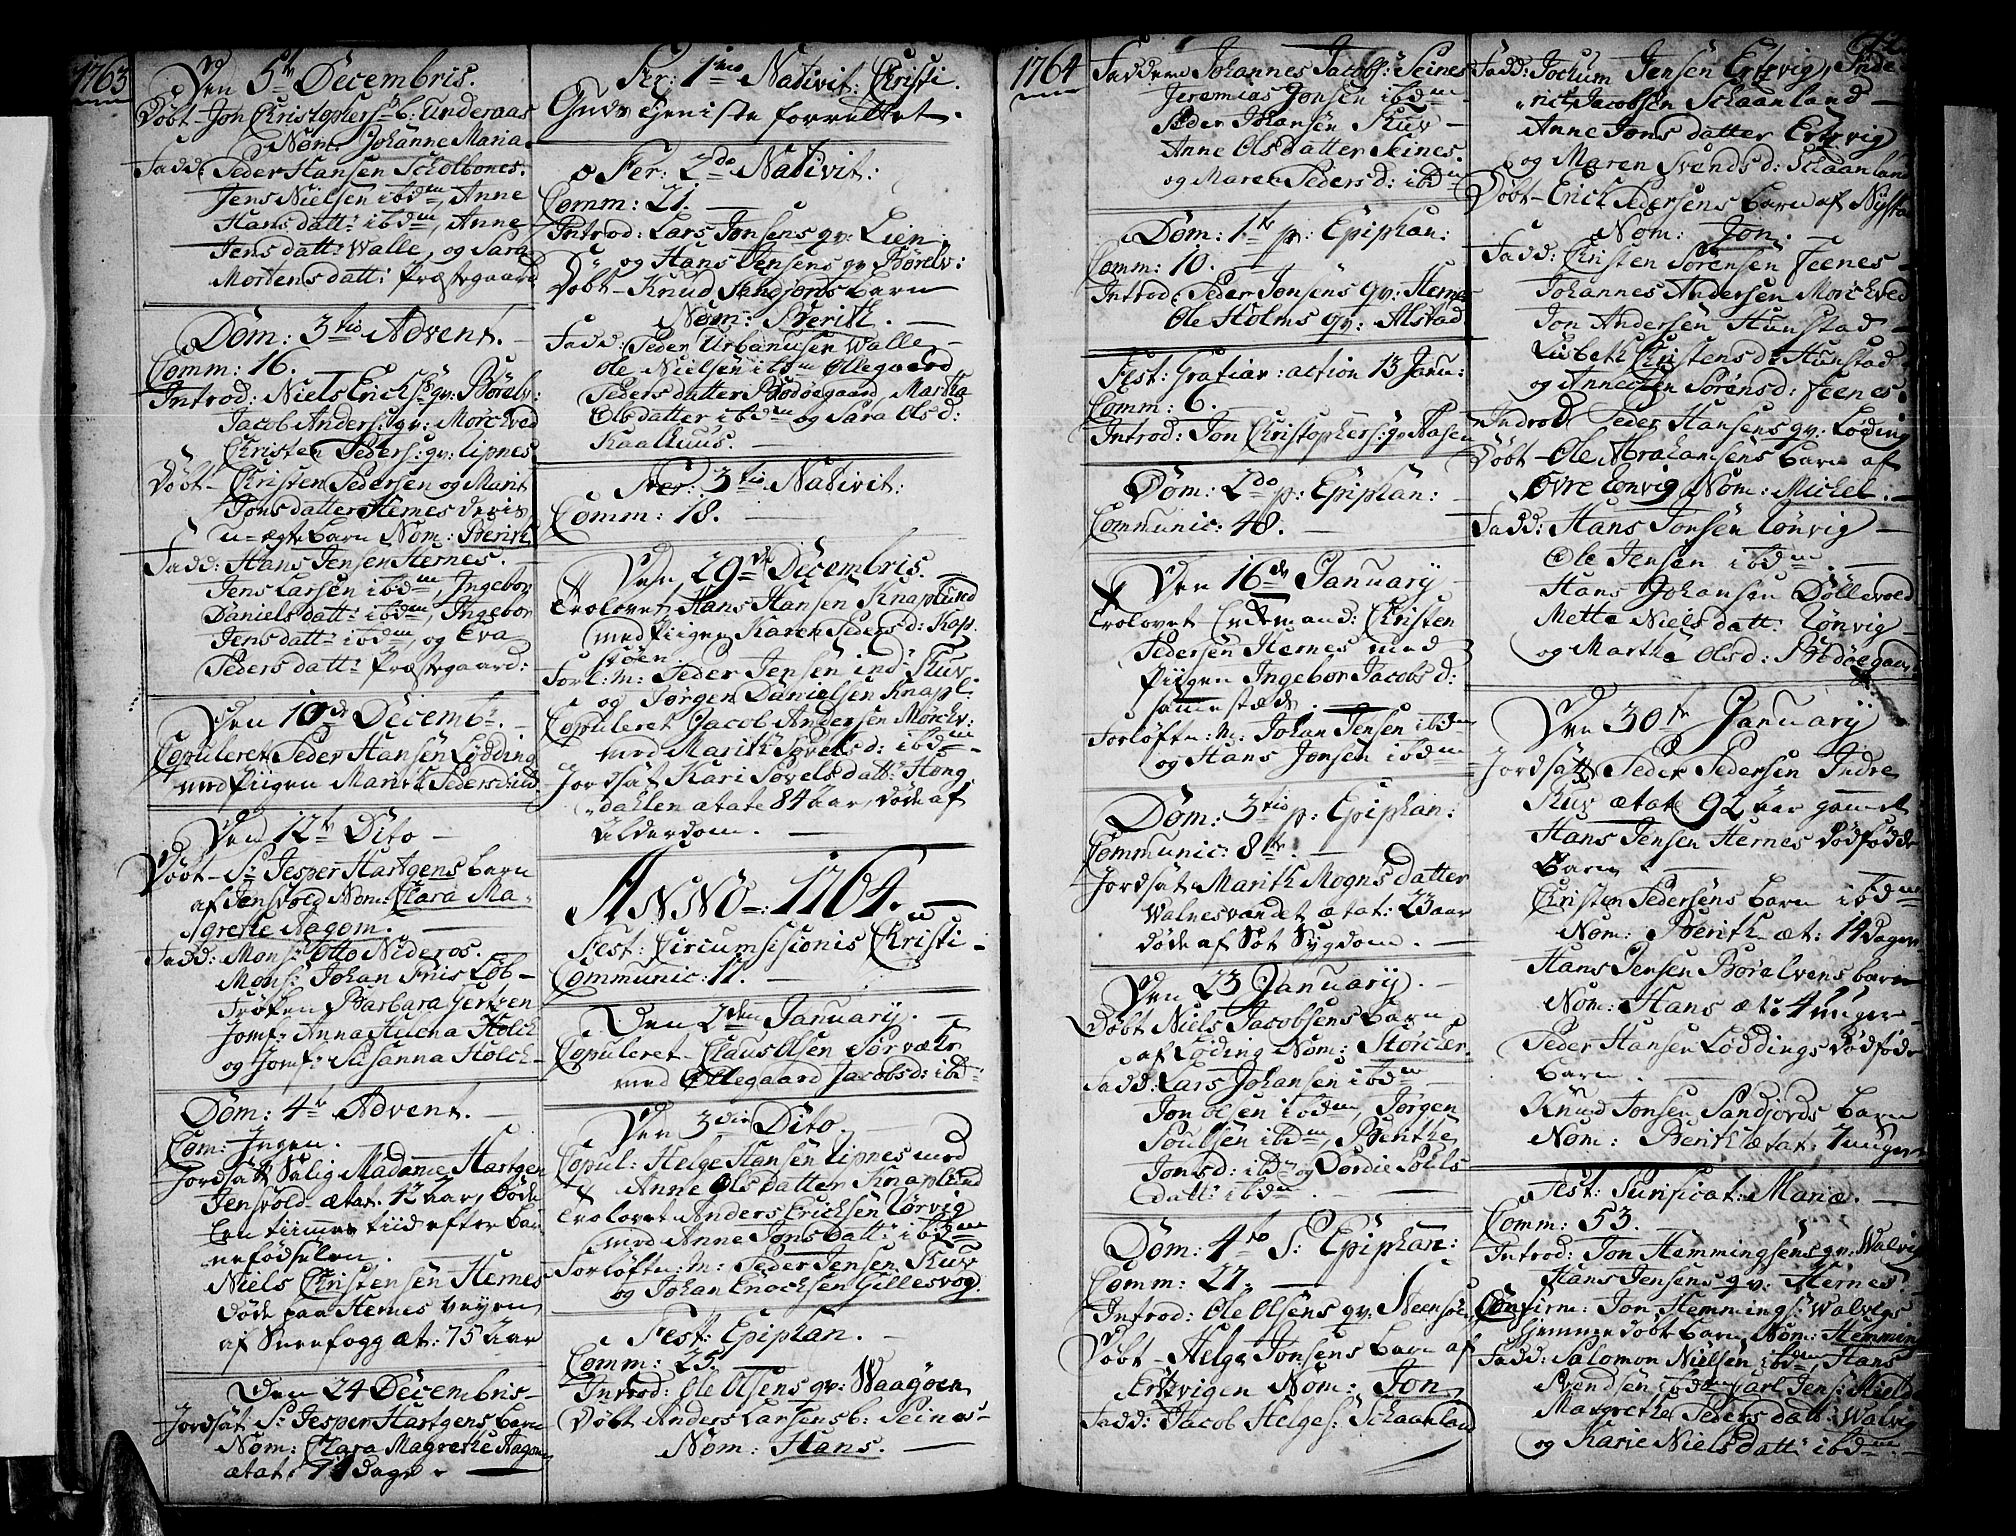 1763
Den 5te Decembris.
Døbt - Jon Christophers: b: Anderaas
Nom: Johanne Maria.
Fadd: Peder Hansen Scholbones.
Jens Nielsen ibdm, Anne
Hans datt: ibdm, Anne
Jens datt: Walle, og Sara
Mortens datt: Præstegaard
Dom: 3tio Advent.
Comm: 16.
Introd: Niels Erichs: qv: Børelv:
Jacob Anders: qv: Morchved
Christen Peders: qv: Lipnes
Døbt - Christen Pedersen og Marit
Jons datter Hernes deris
u-ægte barn Nom: Berith
Fadd: Hans Jensen Hernes.
Jens Larsen ibdm, Ingebor
Daniels datt: ibdm, Ingebor
Jens datt: ibdm, og Eva
Peders datt: Præstegaard:
Den 10de Decembr.
Copuleret Peder Hansen Lødding
med Piigen Marith Pedersd: ibd
Den 12te Dito
Døbt - Sr Jesper Hartgens barn
af Jensvold Nom: Clara Ma-
grethe Aagom.
Fadd: Mons: Otto Nideros.
Mons: Johan Friis Løb-
Frøken Barbara Gertzen
Jomf: Anna Helena Holck
og Jomf: Susanna Holck
Dom: 4te Advent.
Com: Ingen.
Jordsat Salig Madame Hartgen
Jensvold ætat. 42 aar, døde
Een times tiid efter bar
nefødselen.
Niels Christensen Hernes
døde paa Hernes Veyen
af Sneefogg æt: 75 aar
Den 24 Decembris
Jordsat Sr Jesper Hartgens barn
Nom: Clara Magrethe Aagom
ætat: 11 dage.
Fer: 1mo Nativit: Christi.
Guds tjeniste forrettet.
Fer: 2do Nativit:
Comm: 21.
Introd: Lars Jonsens qv: Lien
og Hans Jensens qv Børelv:
Døbt - Knud Sandjords barn
Nom: Berith.
Fadd: Peder Urbanusen Walle
Ole Nielsen ibdm Ollegaard
Peders datter Bodøegaard, Martha
Olsdatter ibdm og Sara Ols d:
Kaalhuus.
Fer: 3tio Nativit:
Comm: 18.
Den 29de Decembris.
Trolovet Hans Hansen Knaplund
med Piigen Karen Peders d: Kop
støen.
Forl: m: Peder Jensen ind: Kuv
og Jørgen Danielsen Knapl:
Copuleret Jacob Andersen Mørchv:
med Marith Povels d: ibdm
Jordsat Kari Povels datt: Hong
dahlen ætate 84 aar, døde af
Alderdom.
ANNO: 1764.
Fest: Circumsisionis Christi
Communic: 11.
Den 2den Januarij.
Copuleret Claus Olsen Sørvær
med Ollegaard Jacobs d: ibd
Den 3die Dito.
Copul: Helge Hansen Lipnes med
Anne Olsdatter Knaplund
Trolovet Anders Erichsen Lørvig
med Anne Jons datt: ibdm
Forløftn: M: Peder Jensen Kuv
og Johan Enochsen Gillesvog.
Fest: Epiphan.
Comm: 25.
Introd: Ole Olsens qv: Waagøen
Døbt Anders Larsens b: Seines
Nom: Hans.
1764
Faddere Johannes Jacobs: Seines
Jeremias Jonsen ibdm
Peder Johansen Kuv
Anne Olsdatter Seines.
og Maren Peders d: ibdm
Dom: 1te p: Epiphan:
Comm: 10.
Introd: Peder Jonsens qv: Hernes
Ole Holms qv: Alstad
Fest: Gratiar: action 13 Janu:
Comm: 6.
Introd: Jon Christophers: qv Aasen
Dom: 2do p: Epiphan:
Communic: 48.
Den 16de January
Trolovet Enkemand: Christen
Pedersen Hernes med
Piigen Ingebor Jacobs d:
sammestæds.
Forløftn: M: Johan Jensen ibdm
og Hans Jonsen ibdm
Dom: 3tio p: Epiphan:
Communic: 8te.
Jordsat Marith Mogns datter
Walnesvandet ætat: 23 aar
døde af Sot Sygdom.
Den 23 Januarij.
Døbt Niels Jacobsens barn
af Løding Nom: Størcher
Fadd: Lars Johansen ibdm
Jon Olsen ibdm, Jørgen
Poulsen ibdm, Benthe
Jonsd: ibdm og Dordie Pouls
datt: ibdm.
Dom: 4to p: Epiphan:
Comm: 27.
Introd: Ole Olsens qv: Steensøe
Døbt - Helge Jonsens barn af
Ertvigen Nom: Jon
Fadd: Jacob Helges: Schaanland
Fadd: Jochum Jensen Ertvig, Inde-
rich Jacobsen Schaanland
Anne Jons datter Ertvig
og Maren Svends d: Schaanland
Døbt - Erich Pedersens barn af Nystad
Nom: Jon.
Fadd: Christen Sørensen Feenes
Johannes Andersen Morchved
Jon Andersen Hunstad
Lisbeth Christens d: Hunstad
og Annechen Sørens d: Feenes.
Introd Peder Hansens qv: Løding
Døbt - Ole Abrahamsens barn af
Øvre Lønvig Nom: Michel.
Fadd: Hans Jonsen Lønvig
Ole Jensen ibdm.
Hans Johansen Døllevold
Mette Niels datt: Lønvig
og Martha Olsd: Bodøegaard
Den 30te Januarij
Jordsatt Peder Pedersen Indre
Kuv ætat 92 aar gammel
Hans Jensen Hernes Dødfødde
Barn.
Christen Pedersens barn ibdm
Nom: Berith æt: 14 dager
Hans Jensen Børalvens barn
Nom: Hans æt: 4 uger
Peder Hansen Løddings dødfødde
barn.
Knud Jonsen Sandjords barn
Nom: Berith ætat: 7 uger
Fest: Purificat: Mariæ.
Comm: 53.
Introd: Jon Hemmingsens qv: Walvig
Hans Jensens qv: Hernes
Confirm: Jon Hemmings: Walvigs
hiemmedøbt barn, Nom: Hemming
Fadd: Salomon Nielsen ibdm, Hans
Svendsen ibdm Carl Jens: Mielde
Margrethe Peders datt: Walvig
og Karie Niels datt: ibdm